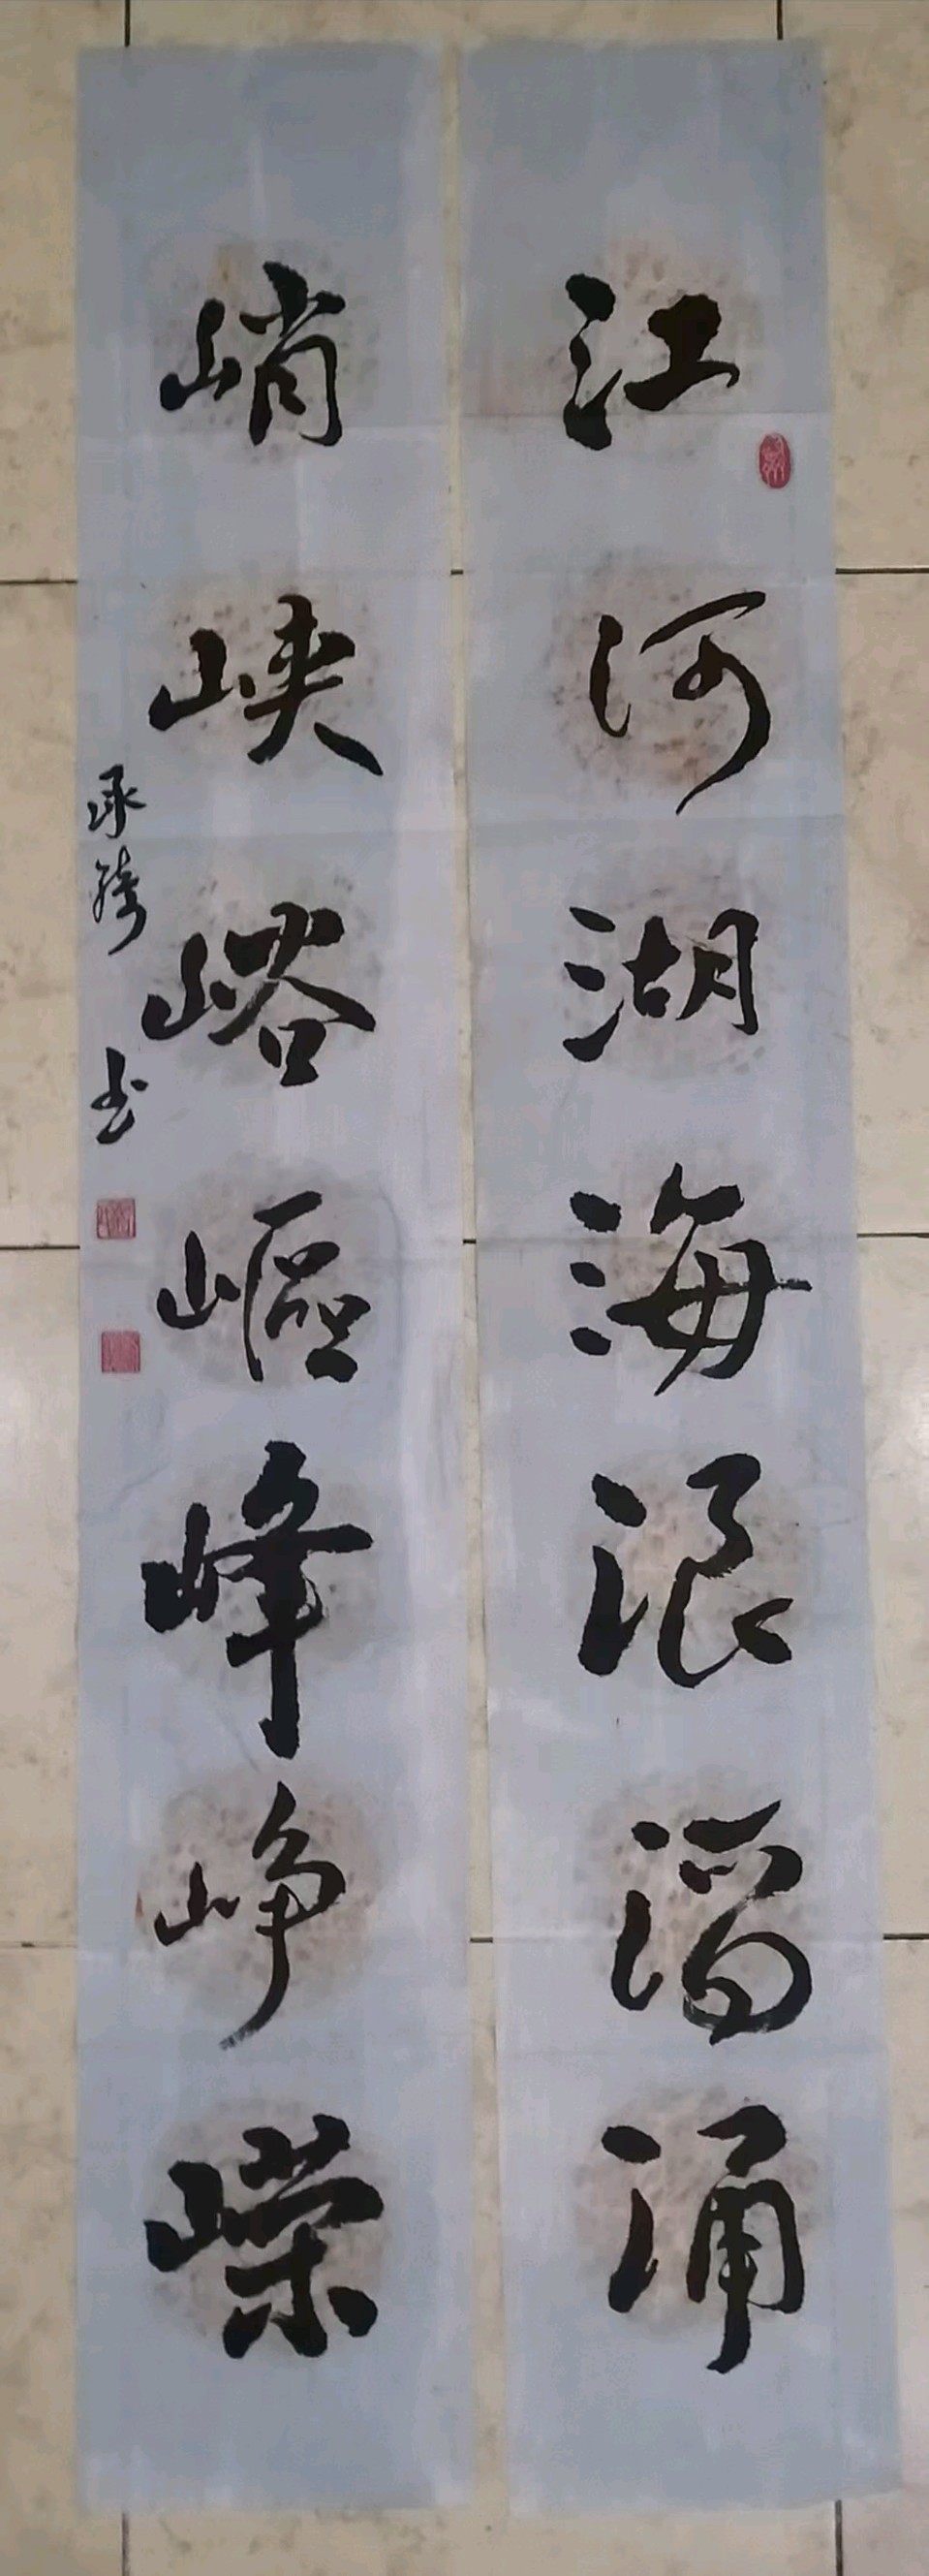 江河湖海浪滔涌
峭峡峪嶇峰峥嵘
承绮书